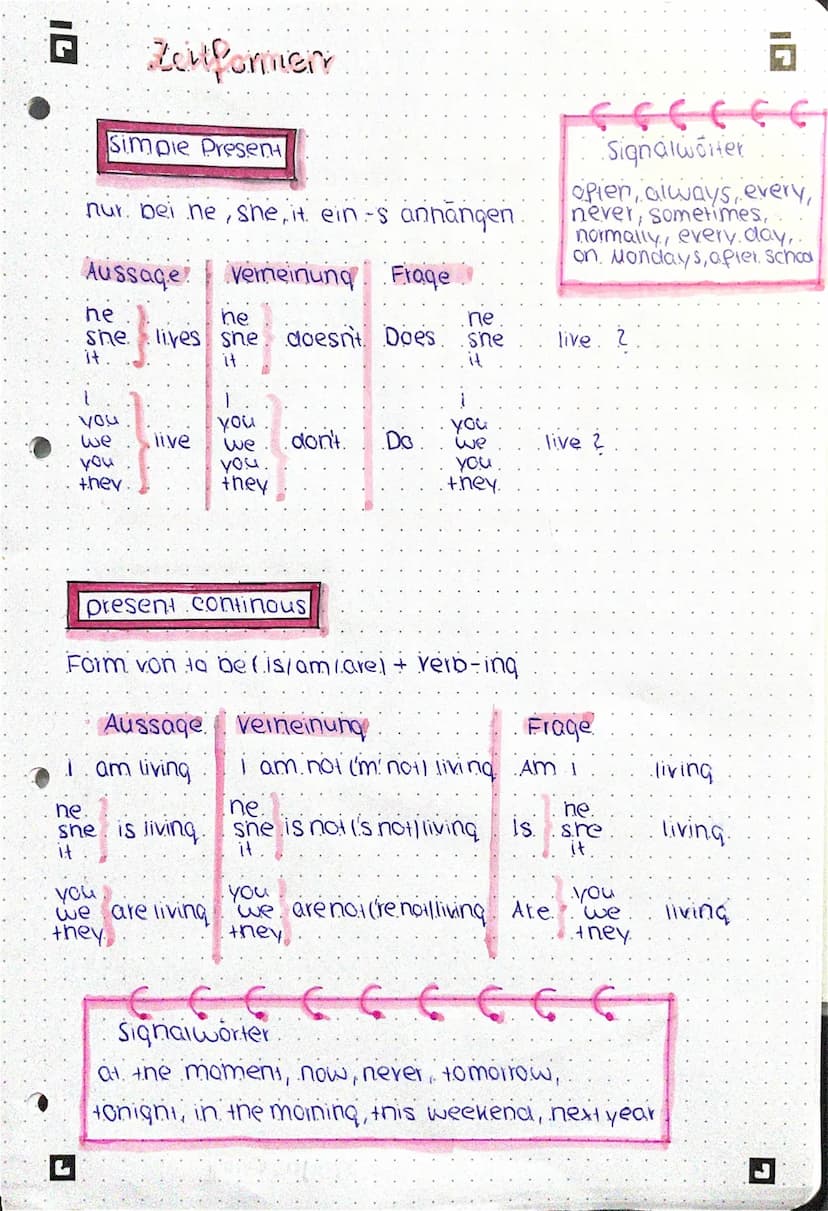 Zeitformen
Simple Present
nur bei he, she, it ein -s anhängen
Signalwörter
often, always, every,
never, sometimes,
normally, every day,
on Mondays, after school
Aussage Verneinung Frage
he he he
she lives she doesn't Does she live ?
it it it
I I i
you you you
we live we don't Do we live ?
you you you
they they they
present continous
Form von to be (is/am/are) + verb-ing
Aussage Verneinung Frage
I am living I am not ('m not) living Am i living
he he he
she is living she is not ('s not) living Is she living
it it it
you you you
we are living we are not ('re not) living Are we living
they they they
Signalwörter
at the moment, now, never, tomorrow,
tonight, in the morning, this weekend, next year